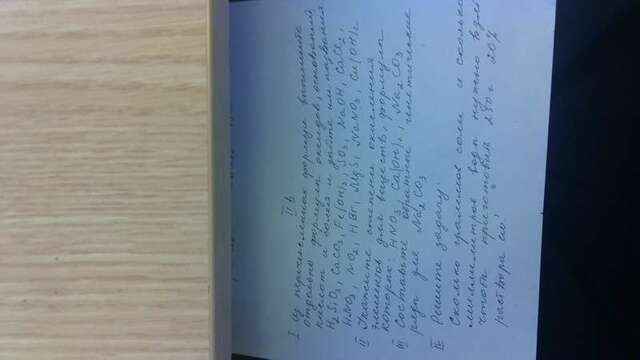 II в
I Из перечисленных формул выпишите
отдельно формулы оксидов, оснований,
кислот и солей и дайте им названия
H2SiO3, CaCO3, Fe(OH)3, SO2, NaOH, CaCl2,
HNO3, NO2, HBr, MgS, NaNO3, Cu(OH)2
II Укажите степени окисления
элементов для веществ, формулы
которых: HNO3, Ca(OH)2, Na2CO3
III Составьте обратные генетические
ряды для Na2CO3
IV Решите задачу
Сколько граммов соли и сколько
миллилитров воды нужно взять
чтобы приготовить 250 г 20%
раствора